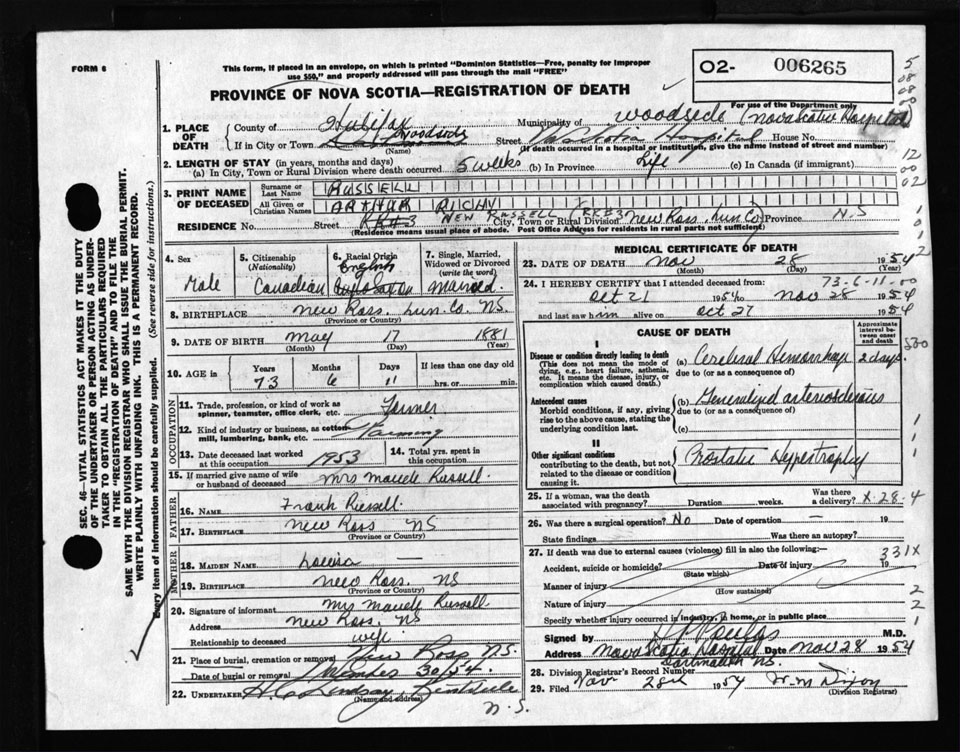 FORM 6
This form, if placed in an envelope, on which is printed "Dominion Statistics—Free, penalty for improper
use $50," and properly addressed will pass through the mail "FREE"
O2- 006265
PROVINCE OF NOVA SCOTIA—REGISTRATION OF DEATH
For use of the Department only
5
08
08
00
12
00
02
1. PLACE OF DEATH
County of Halifax Municipality of Woodside (Nova Scotia Hospital)
If in City or Town Woodside Street Hospital House No.
(Name) (If death occurred in a hospital or institution, give the name instead of street and number)
2. LENGTH OF STAY (in years, months and days)
(a) In City, Town or Rural Division where death occurred 5 weeks (b) in Province Life (c) in Canada (if immigrant)
3. PRINT NAME OF DECEASED
Surname or Last Name RUSSELL
All Given or Christian Names ARTHUR RICHY
NEW RUSSELL RR#3
RESIDENCE No. Street RR#3 City, Town or Rural Division New Ross Lun. Co Province N.S
(Residence means usual place of abode. Post Office Address for residents in rural parts not sufficient)
4. Sex Male
5. Citizenship (Nationality) Canadian
6. Racial Origin English
7. Single, Married, Widowed or Divorced (write the word) Married.
8. BIRTHPLACE New Ross. Lun. Co. NS.
(Province or Country)
9. DATE OF BIRTH May 17 1881
(Month) (Day) (Year)
10. AGE in Years Months Days If less than one day old
73 6 11 hrs. or min.
OCCUPATION
11. Trade, profession, or kind of work as spinner, teamster, office clerk, etc. Farmer
12. Kind of industry or business, as cotton mill, lumbering, bank, etc. Farming
13. Date deceased last worked at this occupation 1953
14. Total yrs. spent in this occupation
15. If married give name of wife or husband of deceased Mrs Maude Russell
FATHER
16. Name Frank Russell
17. Birthplace New Ross NS
(Province or Country)
MOTHER
18. Maiden Name Louisa —
19. Birthplace New Ross. NS
(Province or Country)
20. Signature of informant Mrs Maude Russell.
Address New Ross. NS
Relationship to deceased wife
21. Place of burial, cremation or removal New Ross NS.
Date of burial or removal November 30/54.
22. Undertaker Lindsay,
(Name and address)
N.S.
MEDICAL CERTIFICATE OF DEATH
23. DATE OF DEATH Nov 28 1954
(Month) (Day) (Year)
73-6-11-00
24. I HEREBY CERTIFY that I attended deceased from:
Oct 21 1954 to Nov 28 1954
and last saw him alive on Oct 27 1954
CAUSE OF DEATH
Approximate interval between onset and death
I
Disease or condition directly leading to death
(This does not mean the mode of dying, e.g., heart failure, asthenia, etc. It means the disease, injury, or complication which caused death.)
(a) Cerebral Hemorrhage 2 days.
due to (or as a consequence of)
Antecedent causes
Morbid conditions, if any, giving rise to the above cause, stating the underlying condition last.
(b) Generalized arteriosclerosis
due to (or as a consequence of)
(c)
II
Other significant conditions
contributing to the death, but not related to the disease or condition causing it.
Prostatic Hypertrophy
25. If a woman, was the death associated with pregnancy? Duration weeks. Was there a delivery? X-28-4
26. Was there a surgical operation? No Date of operation — 19
State findings Was there an autopsy?
27. If death was due to external causes (violence) fill in also the following:— 331X
Accident, suicide or homicide? Date of injury 19
(State which)
Manner of injury
(How sustained)
Nature of injury
Specify whether injury occurred in industry, in home, or in public place
Signed by M.D.
Address Nova Scotia Hospital Date Nov 28 1954
Dartmouth NS.
28. Division Registrar's Record Number
29. Filed Nov 28th 1954
(Division Registrar)
SEC. 46—VITAL STATISTICS ACT MAKES IT THE DUTY
OF THE UNDERTAKER OR PERSON ACTING AS UNDER-
TAKER TO OBTAIN ALL THE PARTICULARS REQUIRED
IN THE "REGISTRATION OF DEATH" AND TO FILE THE
SAME WITH THE DIVISION REGISTRAR WHO SHALL ISSUE THE BURIAL PERMIT.
WRITE PLAINLY WITH UNFADING INK. THIS IS A PERMANENT RECORD.
Every item of information should be carefully supplied. (See reverse side for instructions.)